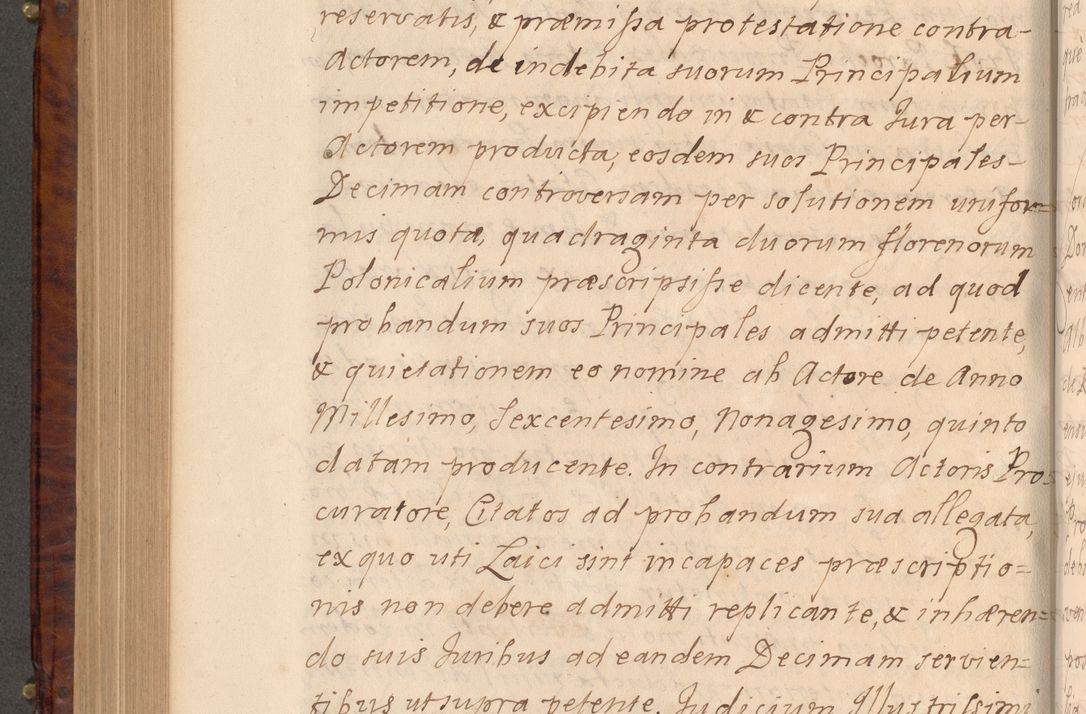 reservatis, & præmissa protestatione contra-
Actorem, de indebita suorum Principalium
impetitione, excipiendo in & contra Jura per-
Actorem producta, eosdem suos Principales-
Decimam controversam per solutionem unifor=
mis quotæ, quadraginta duorum florenorum
Polonicalium præscripsisse dicente, ad quod
probandum suos Principales admitti petente,
& quietationem eo nomine ab Actore de Anno
Millesimo, Sexcentesimo, Nonagesimo, quinto
datam producente. In contrarium Actoris Pro=
curatore, Citatos ad probandum sua allegata,
ex quo uti Laici sint incapaces præscriptio=
nis non debere admitti replicante, & inhæren=
do suis Juribus ad eandem Decimam servien=
tibus ut supra petente. Judicium Illustrissimi